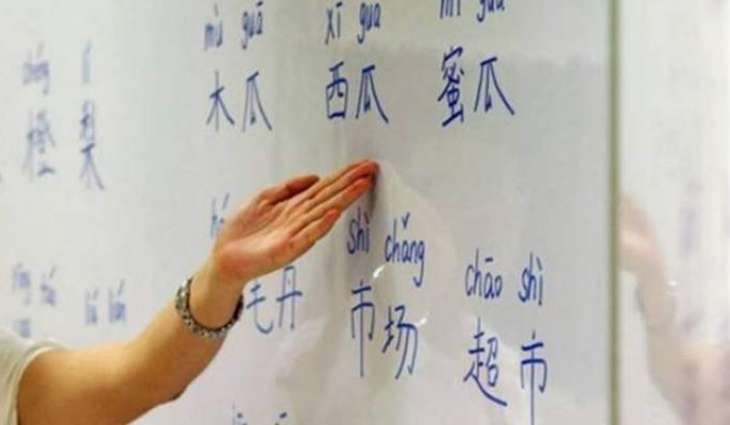 mù guā
xī gua
mì gua
木瓜
西瓜
蜜瓜
chéng lí
橙 梨
shì chǎng
chāo shì
毛丹
市场
超市